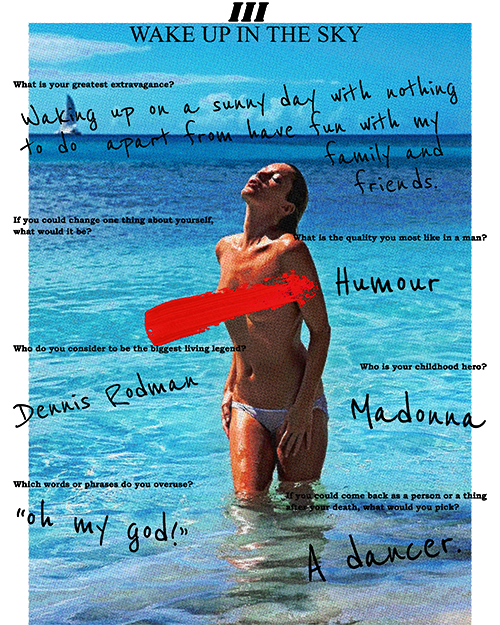 III
WAKE UP IN THE SKY
What is your greatest extravagance?
Waking up on a sunny day with nothing
to do apart from have fun with my
family and
friends.
If you could change one thing about yourself,
what would it be?
What is the quality you most like in a man?
Humour
Who do you consider to be the biggest living legend?
Dennis Rodman
Who is your childhood hero?
Madonna
Which words or phrases do you overuse?
"oh my god!"
If you could come back as a person or a thing
after your death, what would you pick?
A dancer.